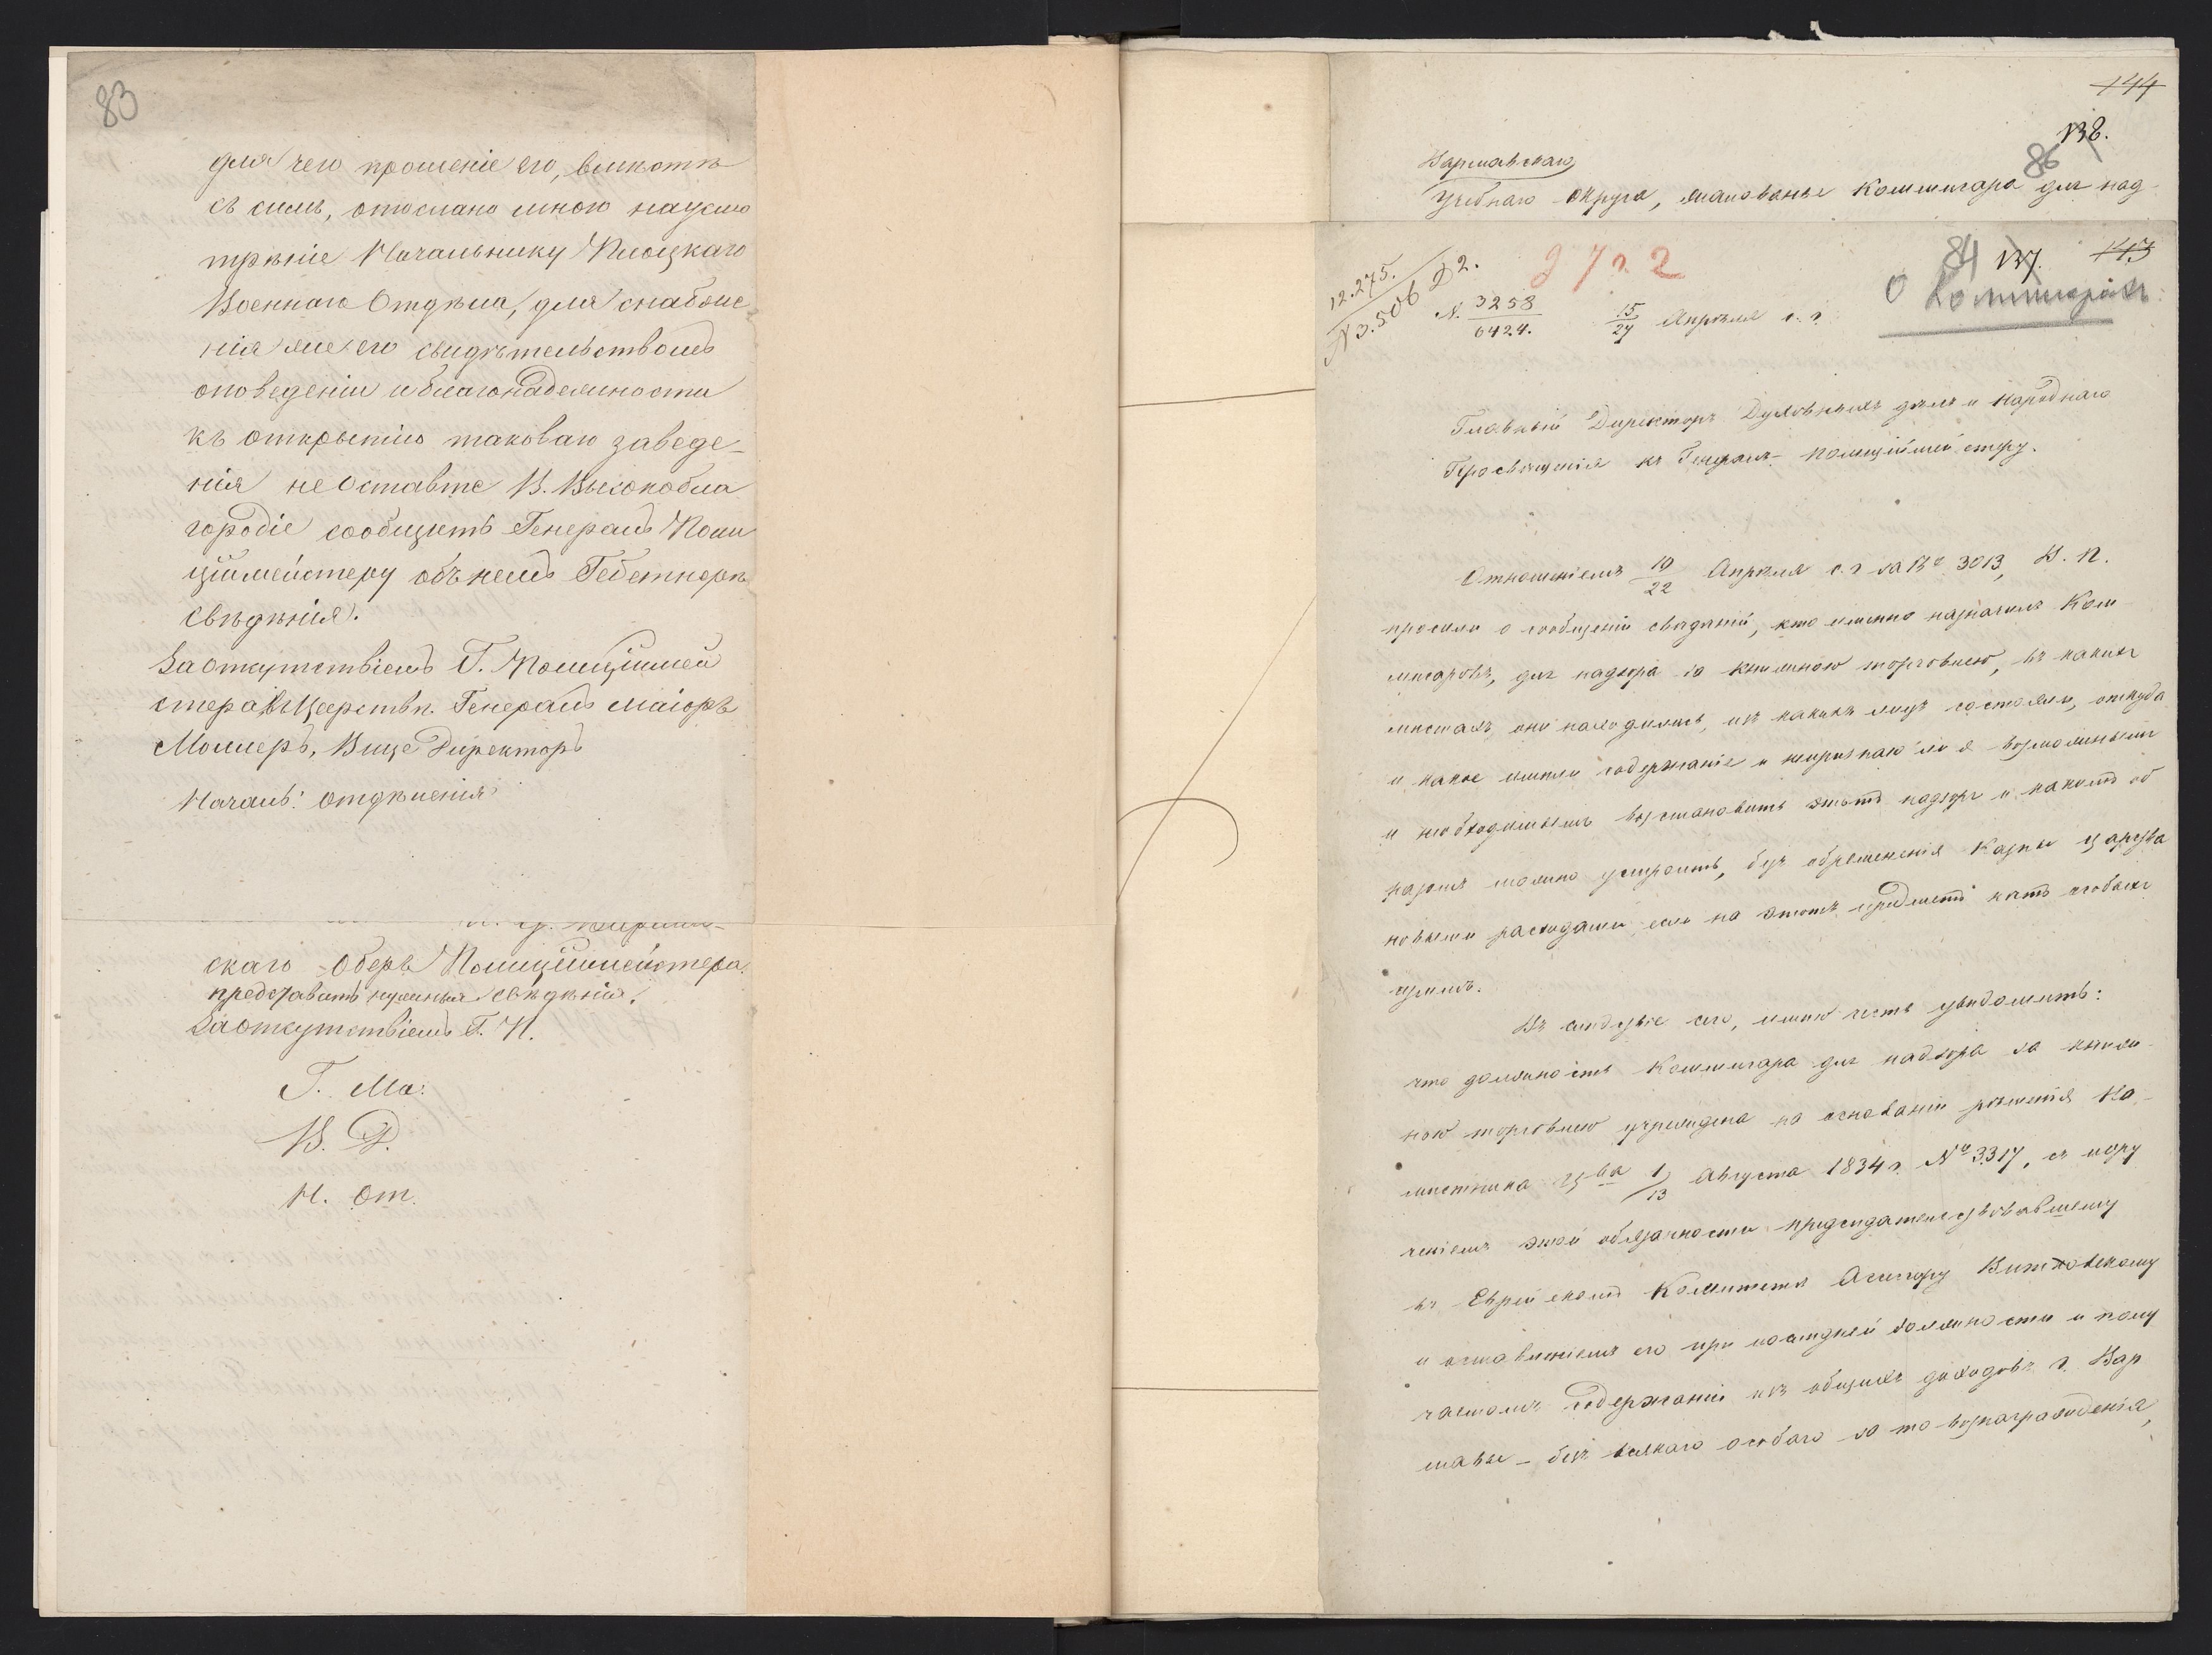 83
для чего прошеніе его, вмѣстѣ
съ симъ, отослано мною на усмо
трѣніе Начальнику Плоцкаго
Военнаго Отдѣла, для снабже
нія его свидѣтельствомъ
о поведеніи и благонадежности
къ открытію таковаго заведе-
нія не оставте В. Высокобла
городіе сообщить Генералъ Поли
ціймейстеру объ немъ
свѣдѣнія.
За откутствіемъ Г. Полиціймей
стера въ Царствѣ Генералъ Маіоръ
Моллеръ, Вице Директоръ
Началь: отдѣленія
скаго Оберъ Полиціймейстера
представить нужныя свѣдѣнія.
За откутствіемъ Г. П.
Г. Ма:
В. Д.
Н. От.
144
138.
86
Варшавскаго
Учебнаго Округа, жалованье Коммисара для над-
12.275.
N 3.506 Д2.
27 2
N. 3258
6424.
15
27 Апрѣля с. г.
84 137. 143
О Коммисарахъ
Главный Директоръ Духовныхъ дѣлъ и Народнаго
Просвѣщенія къ Генералъ-Полиціймейстеру.
Отношеніемъ 10
22 Апрѣля с. г. за № 3013, В. П.
просили о сообщеніи свѣдѣній, кто именно назначилъ Ком
мисаровъ, для надзора за книжною торговлею, въ какихъ
мѣстахъ они находились, изъ какихъ лицъ состояли, откуда
и какое имѣли содержаніе и непризнаю ли я возможнымъ
и необходимымъ возстановить этотъ надзоръ и какимъ об
разомъ можно устроить, безъ обремененія Казны Царства
новыми расходами, если на этотъ предметъ нѣтъ особыхъ
суммъ.
Въ слѣдствіе сего, имѣю честь увѣдомить:
что должность Коммисара для надзора за книж-
ною торговлею учреждена на основаніи рѣшенія На-
мѣстника Ц-ва 1
13 Августа 1834 г. № 3317, съ пору
ченіемъ этой обязанности предсѣдательствовавшему
въ Еврейскомъ Комитетѣ Асессору Витковскому
и оставленіемъ его при послѣдней должности и полу
чаемомъ содержаніи изъ общихъ доходовъ г. Вар
шавы - безъ всякаго особаго за то вознагражденія,